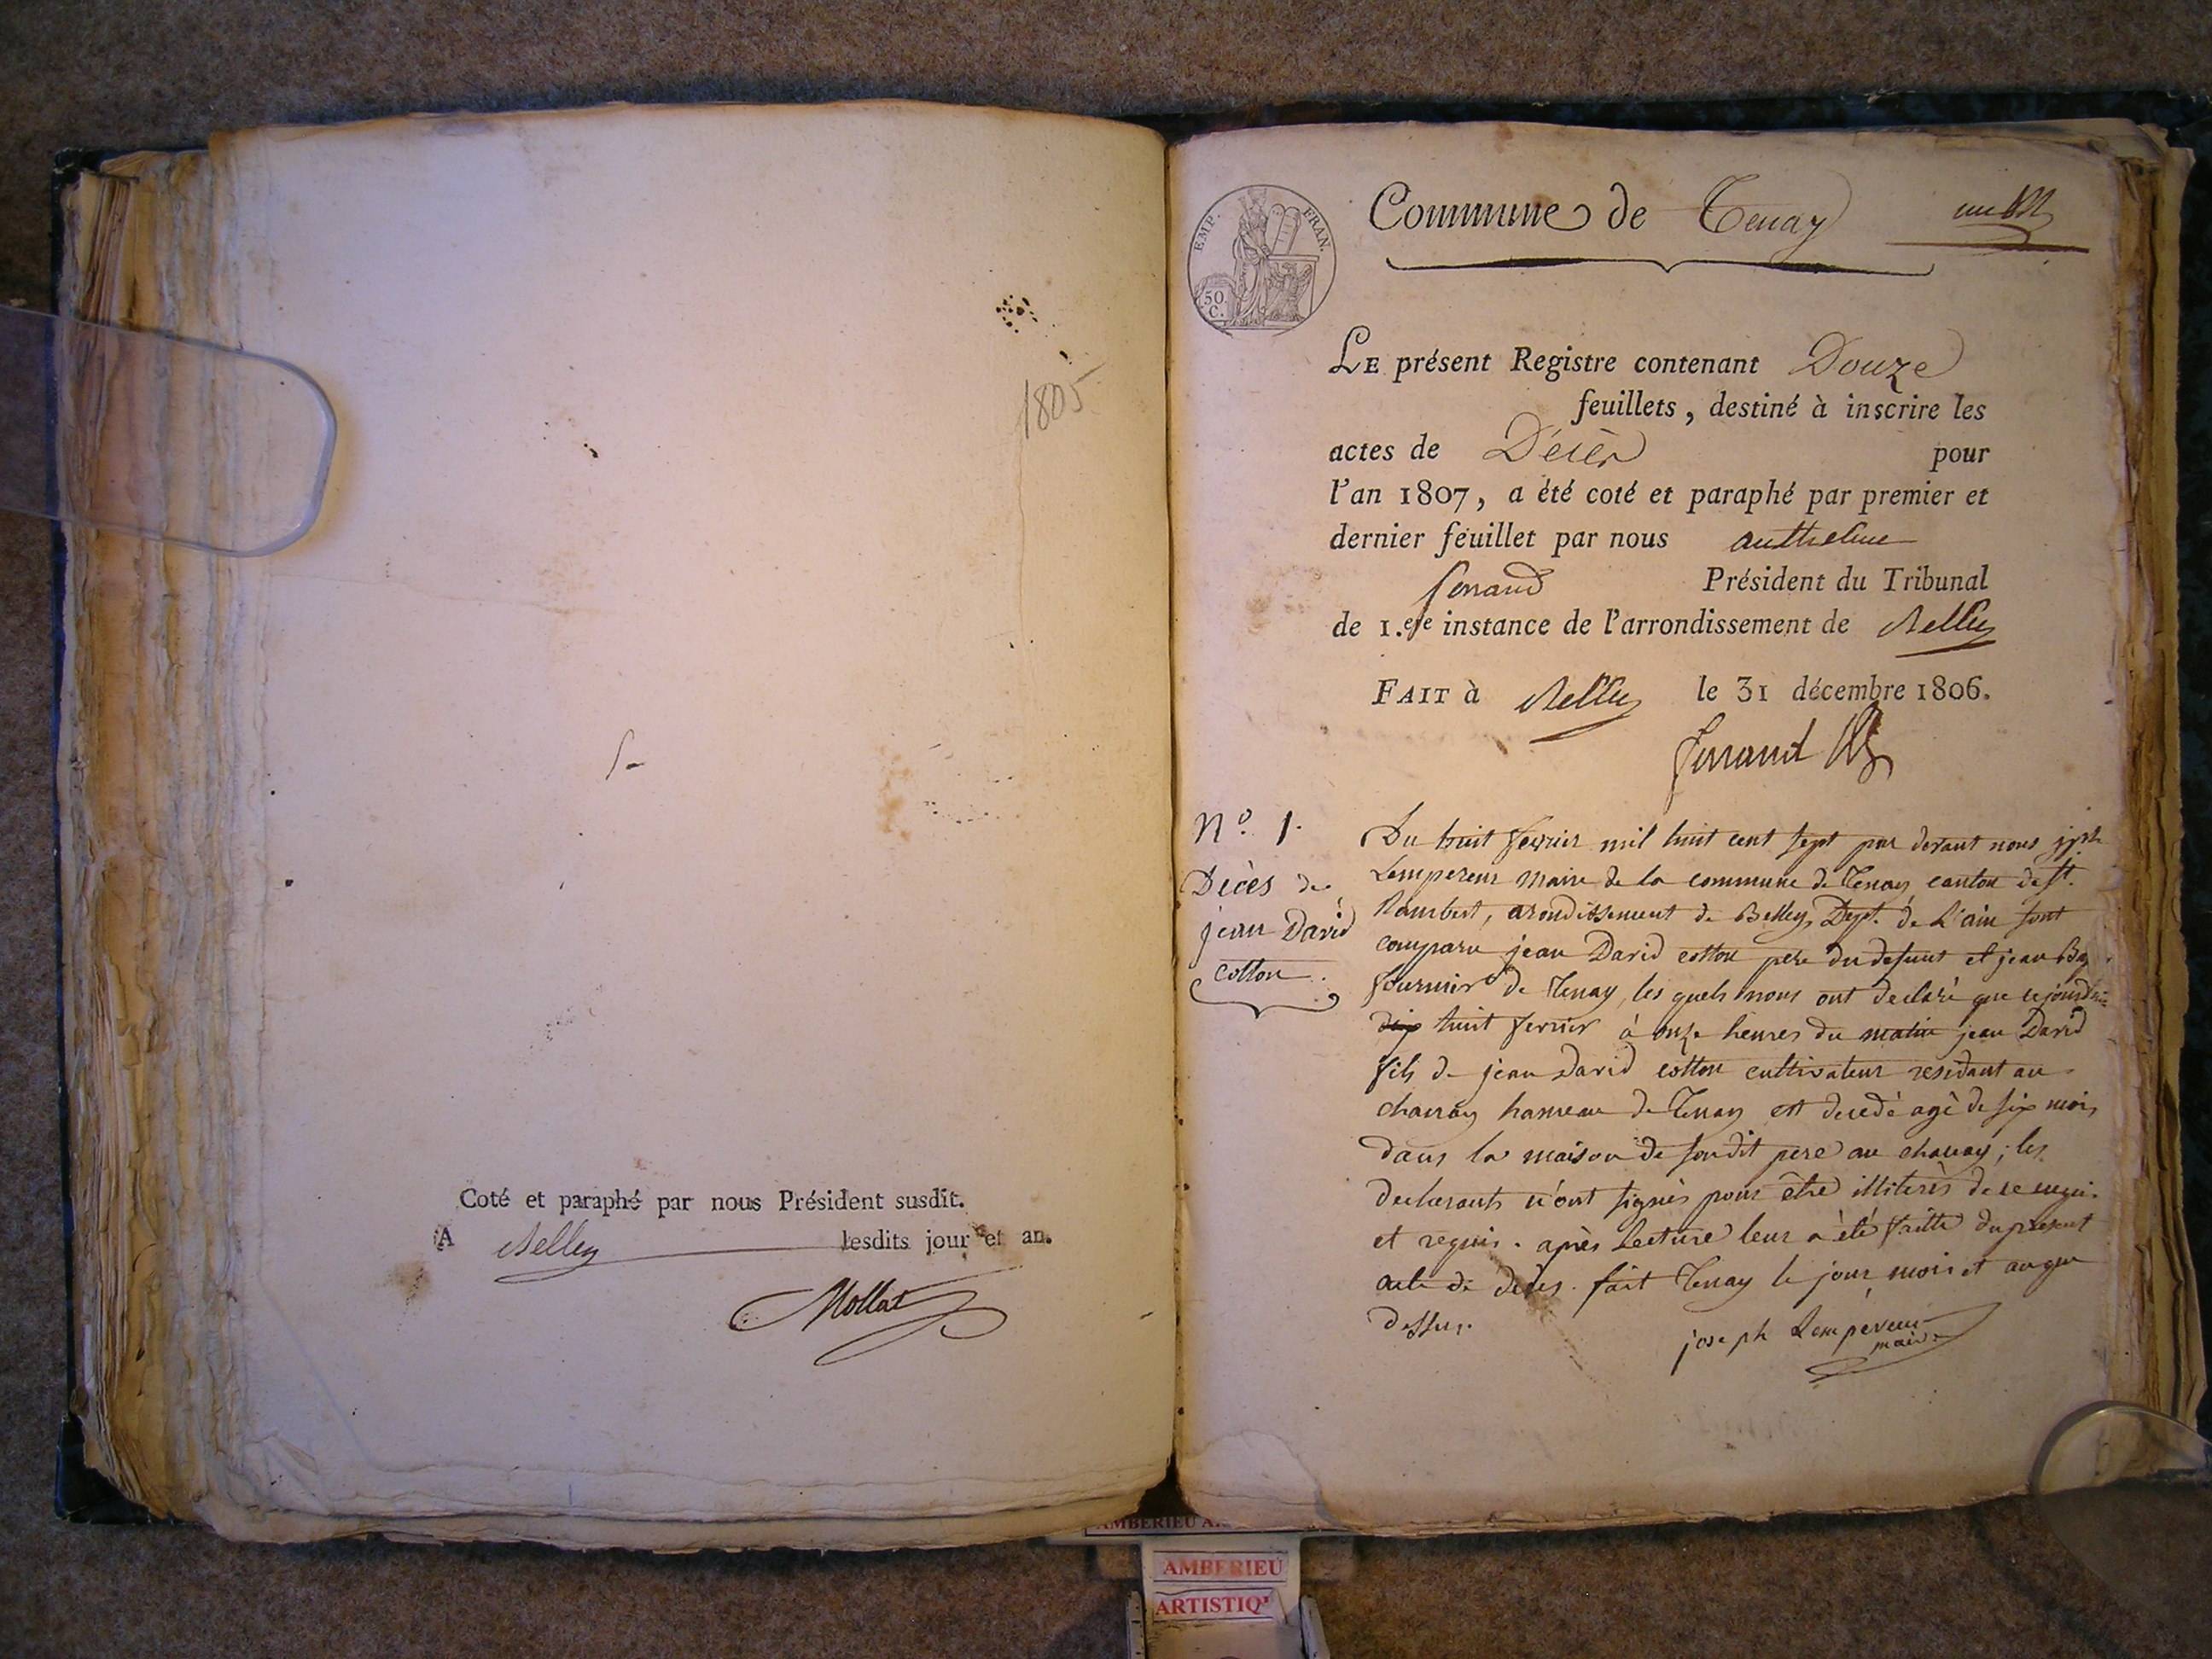 1805
Coté et paraphé par nous Président susdit.
A Belley lesdits jour et an.
Mollat
EMP. FRAN.
50
C.
Commune de Tenay
un
LE présent Registre contenant Douze
feuillets, destiné à inscrire les
actes de Décès pour
l'an 1807, a été coté et paraphé par premier et
dernier feuillet par nous anthelme
ferrand Président du Tribunal
de 1.ere instance de l'arrondissement de Belley
FAIT à Belley le 31 décembre 1806.
ferrand
N.o 1.
Décès de
jean David
cotton.
Du huit fevrier mil huit cent sept par devant nous jph
Lempereur maire de la commune de Tenay canton de St.
Rambert, arondissement de Belley, Dept. de L'ain sont
comparu jean David cotton pere du defunt et jean Bap.
fournier de Tenay, les quels nous ont declaré que cejourdhui
dix huit fevrier à onze heures du matin jean David
fils de jean David cotton cultivateur residant au
chanay hameau de Tenay est decedé agé de six mois
dans la maison de son dit pere au chanay; les
declarants n'ont signés pour être illiterés de ce enquis
et requis. après Lecture leur a été faitte du present
acte de décès. fait Tenay le jour, mois et an que
dessus.
joseph Lempereur
maire
AMBERIEU A
AMBERIEU
ARTISTIQ